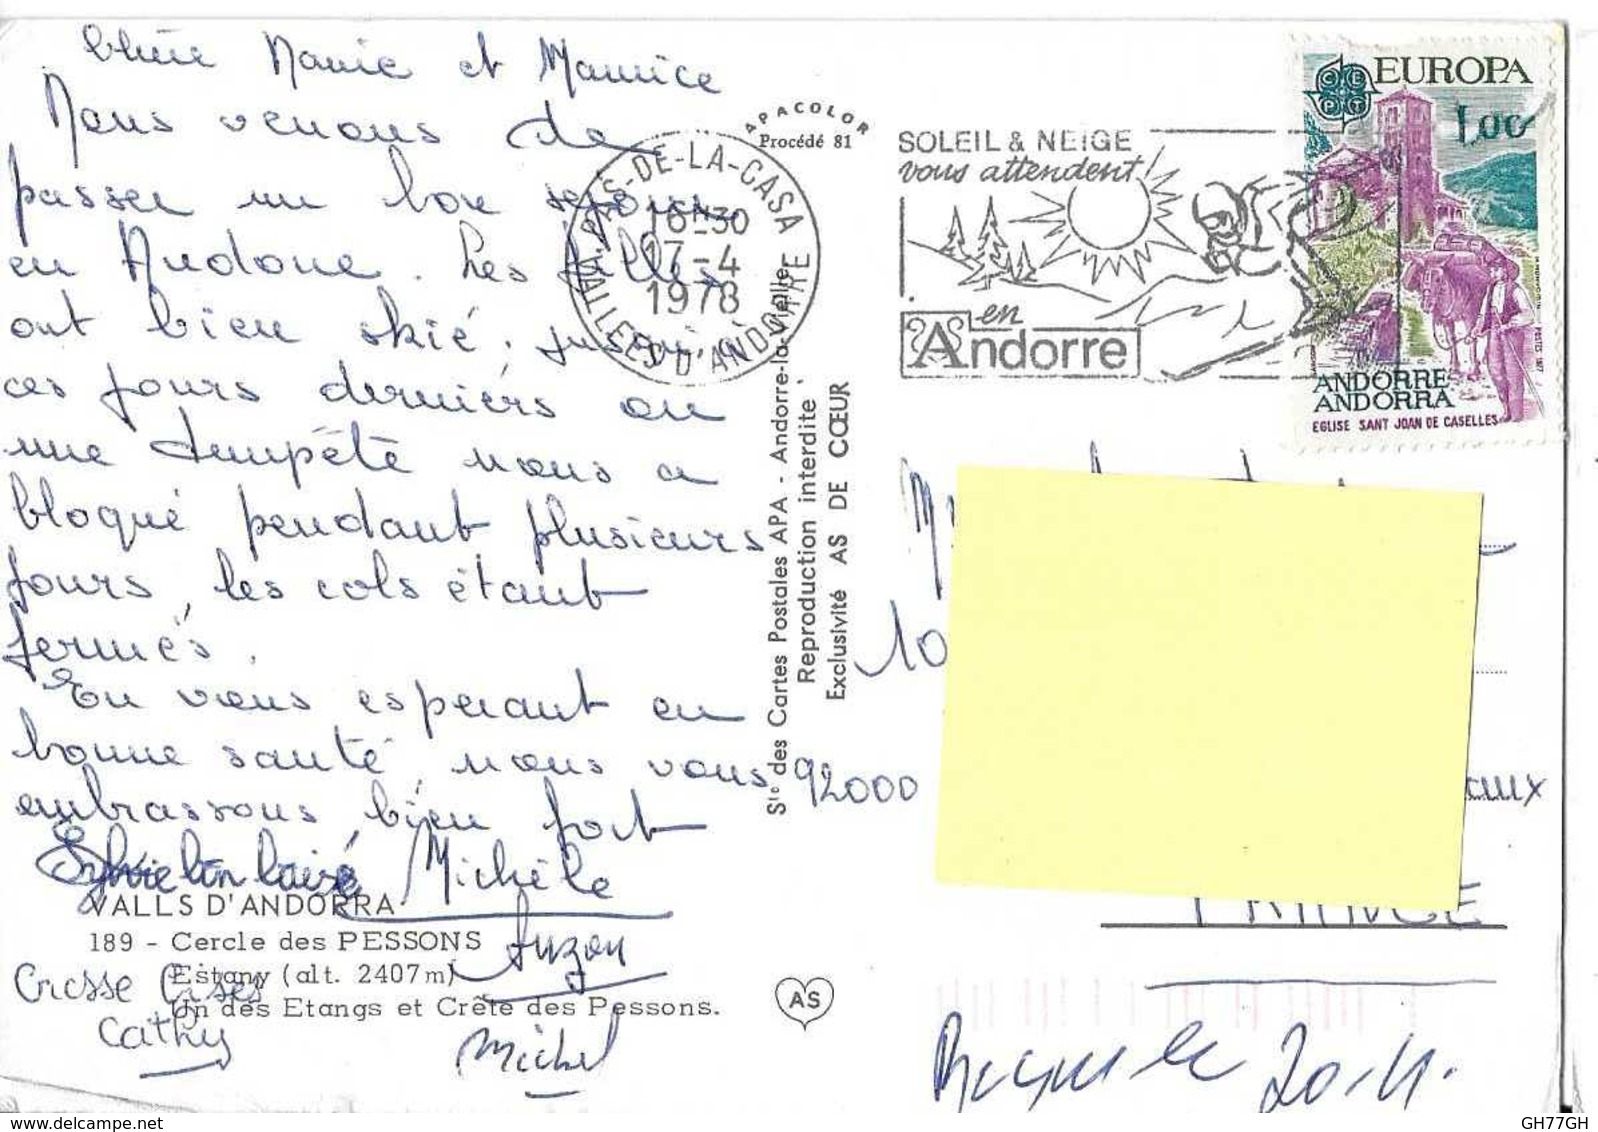 Chère Mamie et Maurice
Nous venons de
passer un bon séjour
en Andorre. Les filles
ont bien skié, jusqu'à
ces jours derniers où
une tempête nous a
bloqué pendant plusieurs
jours, les cols étant
fermés.
En vous esperant en
bonne santé, nous vous
embrassons bien fort
Sylvie Michèle
VALLS D'ANDORRA
189 - Cercle des PESSONS
Suzon
Estany (alt. 2407 m)
Grosse Bises
Un des Etangs et Crête des Pessons.
Cathy
Michel
APACOLOR
Procédé 81
Sté des Cartes Postales APA - Andorre-la-Vieille
Reproduction interdite
Exclusivité AS DE CŒUR
AS
PAS-DE-LA-CASA
16H30
17-4
1978
VALLEES D'ANDORRE
SOLEIL & NEIGE
vous attendent!
en
Andorre
CEPT
EUROPA
1,00
ANDORRE
ANDORRA
EGLISE SANT JOAN DE CASELLES
POSTES 1977
10
92000
aux
FRANCE
Reçu le 20.4.
GH77GH